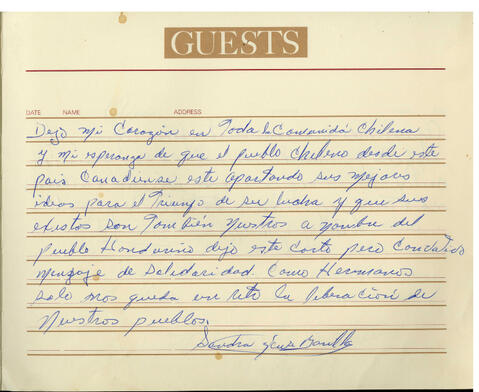 GUESTS
DATE NAME ADDRESS
Dejo mi Corazón en Toda la Comunidá Chilena
y mi esperanza de que el pueblo chileno desde este
pais Canadiense este aportando sus mejores
ideas para el Triunfo de su lucha y que sus
existos son También Nuestros a nombre del
pueblo Hondureño dejo este corto pero
mensaje de Solidaridad. Como Hermanos
solo nos queda un reto la liberación de
Nuestros pueblos.
Sandra